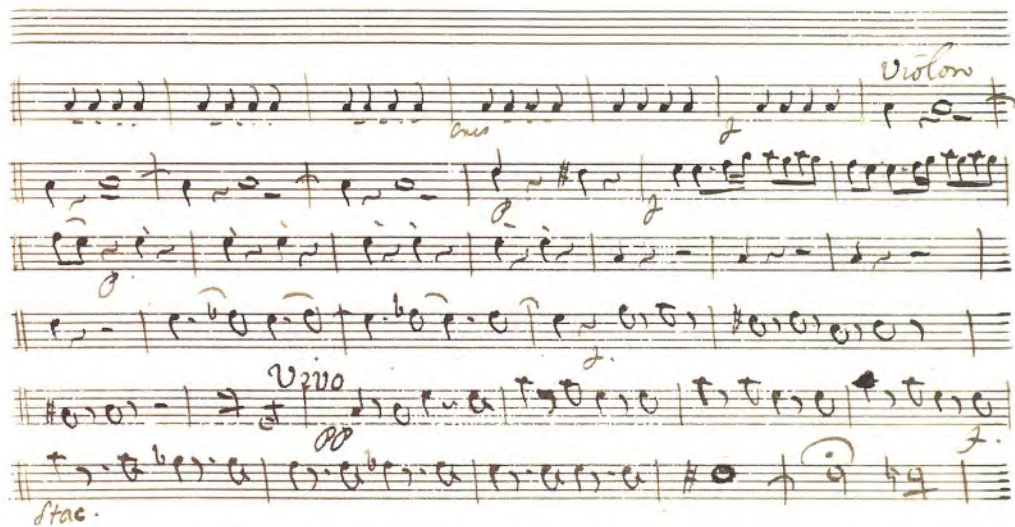 Violon
cres f
p f
p.
f.
Vivo
pp f.
stac.